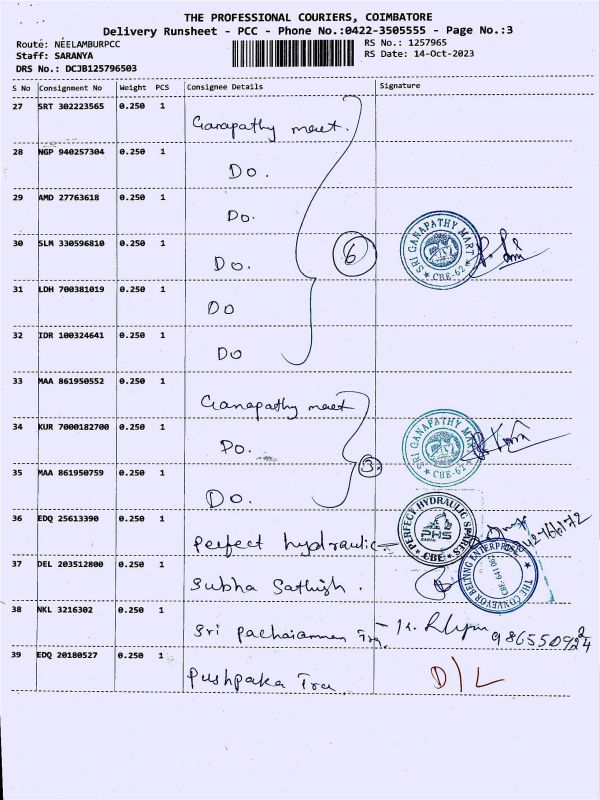 THE PROFESSIONAL COURIERS, COIMBATORE
Delivery Runsheet - PCC - Phone No.:0422-3505555 - Page No.:3
Route: NEELAMBURPCC
RS No.: 1257965
Staff: SARANYA
RS Date: 14-Oct-2023
DRS No.: DCJB125796503
S No Consignment No Weight PCS Consignee Details Signature
27 SRT 302223565 0.250 1
Ganapathy mart.
28 NGP 940257304 0.250 1
Do.
29 AMD 27763618 0.250 1
Do.
30 SLM 330596810 0.250 1
Do. 6 SRI GANAPATHY MART CBE-62
31 LDH 700381019 0.250 1
Do
32 IDR 100324641 0.250 1
Do
33 MAA 861950552 0.250 1
Ganapathy mart
34 KUR 7000182700 0.250 1
Do. SRI GANAPATHY MART CBE-62
35 MAA 861950759 0.250 1
Do. 3
36 EDQ 25613390 0.250 1
Perfect hydraulic PERFECT HYDRAULIC SPARES PHS CBE
37 DEL 203512800 0.250 1
Subha Sathish. THE CONVEYOR BELTING ENTERPRISES
38 NKL 3216302 0.250 1
Sri Pachaiamman Tra.
39 EDQ 20180527 0.250 1
Pushpaka Tra. D/L